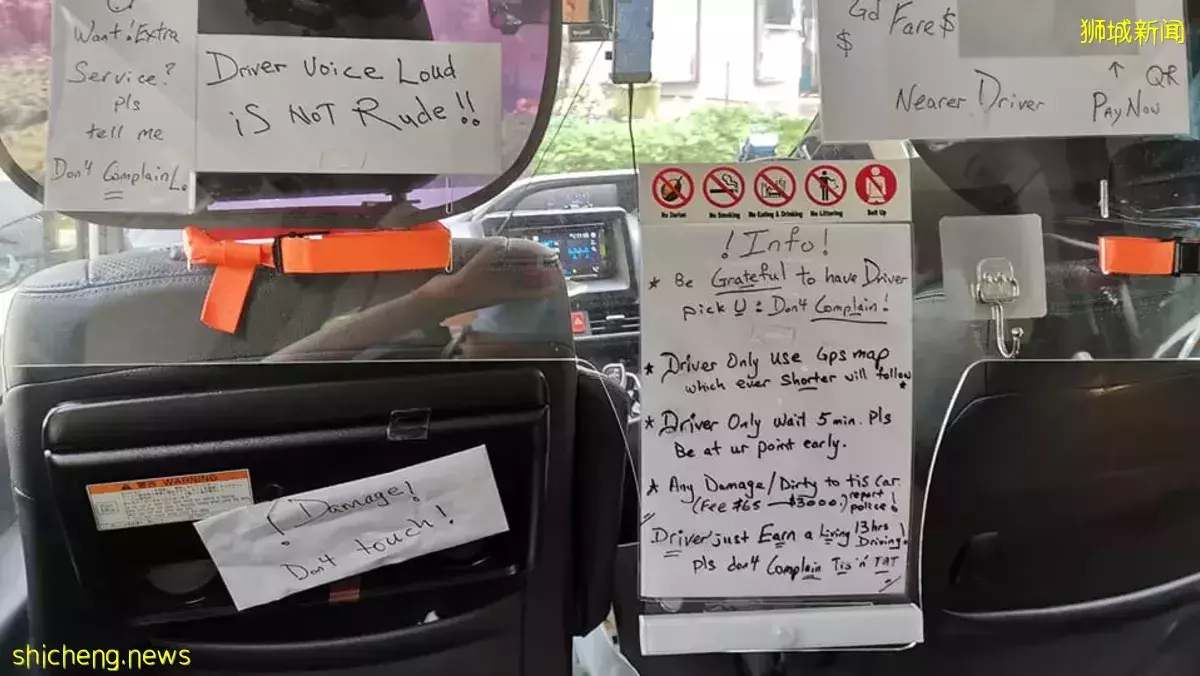 Want! Extra
Service?
pls
tell me
Don't Complain!.
Driver Voice Loud
is NOT Rude!!
Gd Fare $
$
↑ QR
Nearer Driver PayNow
狮城新闻
No Durian No Smoking No Eating & Drinking No Littering Belt Up
! Info!
* Be Grateful to have Driver
pick U : Don't Complain!
* Driver Only use Gps map
which ever shorter will follow
* Driver Only Wait 5 min. Pls
Be at ur point early.
* Any Damage/Dirty to tis car
(Fee $65 — $3000.) report police!
Driver just Earn a Living 13hrs Driving!
pls don't Complain Tis 'n' TAT
WARNING
! Damage!
Don't touch!
shicheng.news